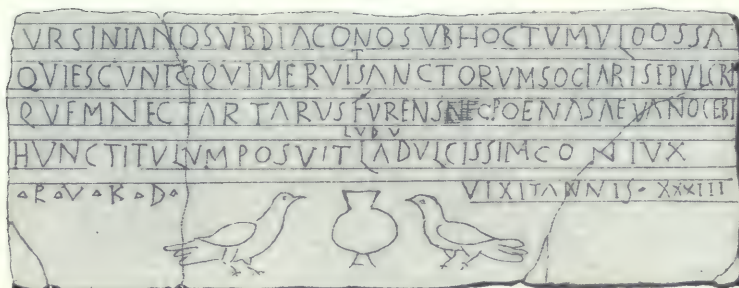 VRSINIANOSVBDIACONOSVBHOCTVMVLOOSSA
T
QVIESCVNTQQVIMERVISANCTORVMSOCIARISEPVLCRI
QVEMNECTARTARVSFVRENSNECPOENASAEVANOCEBI
LVDV
HVNCTITVLVMPOSVITLADVLCISSIMCONIVX
▵R▵V▵K▵D▵ VIXITANNIS·XXXIII